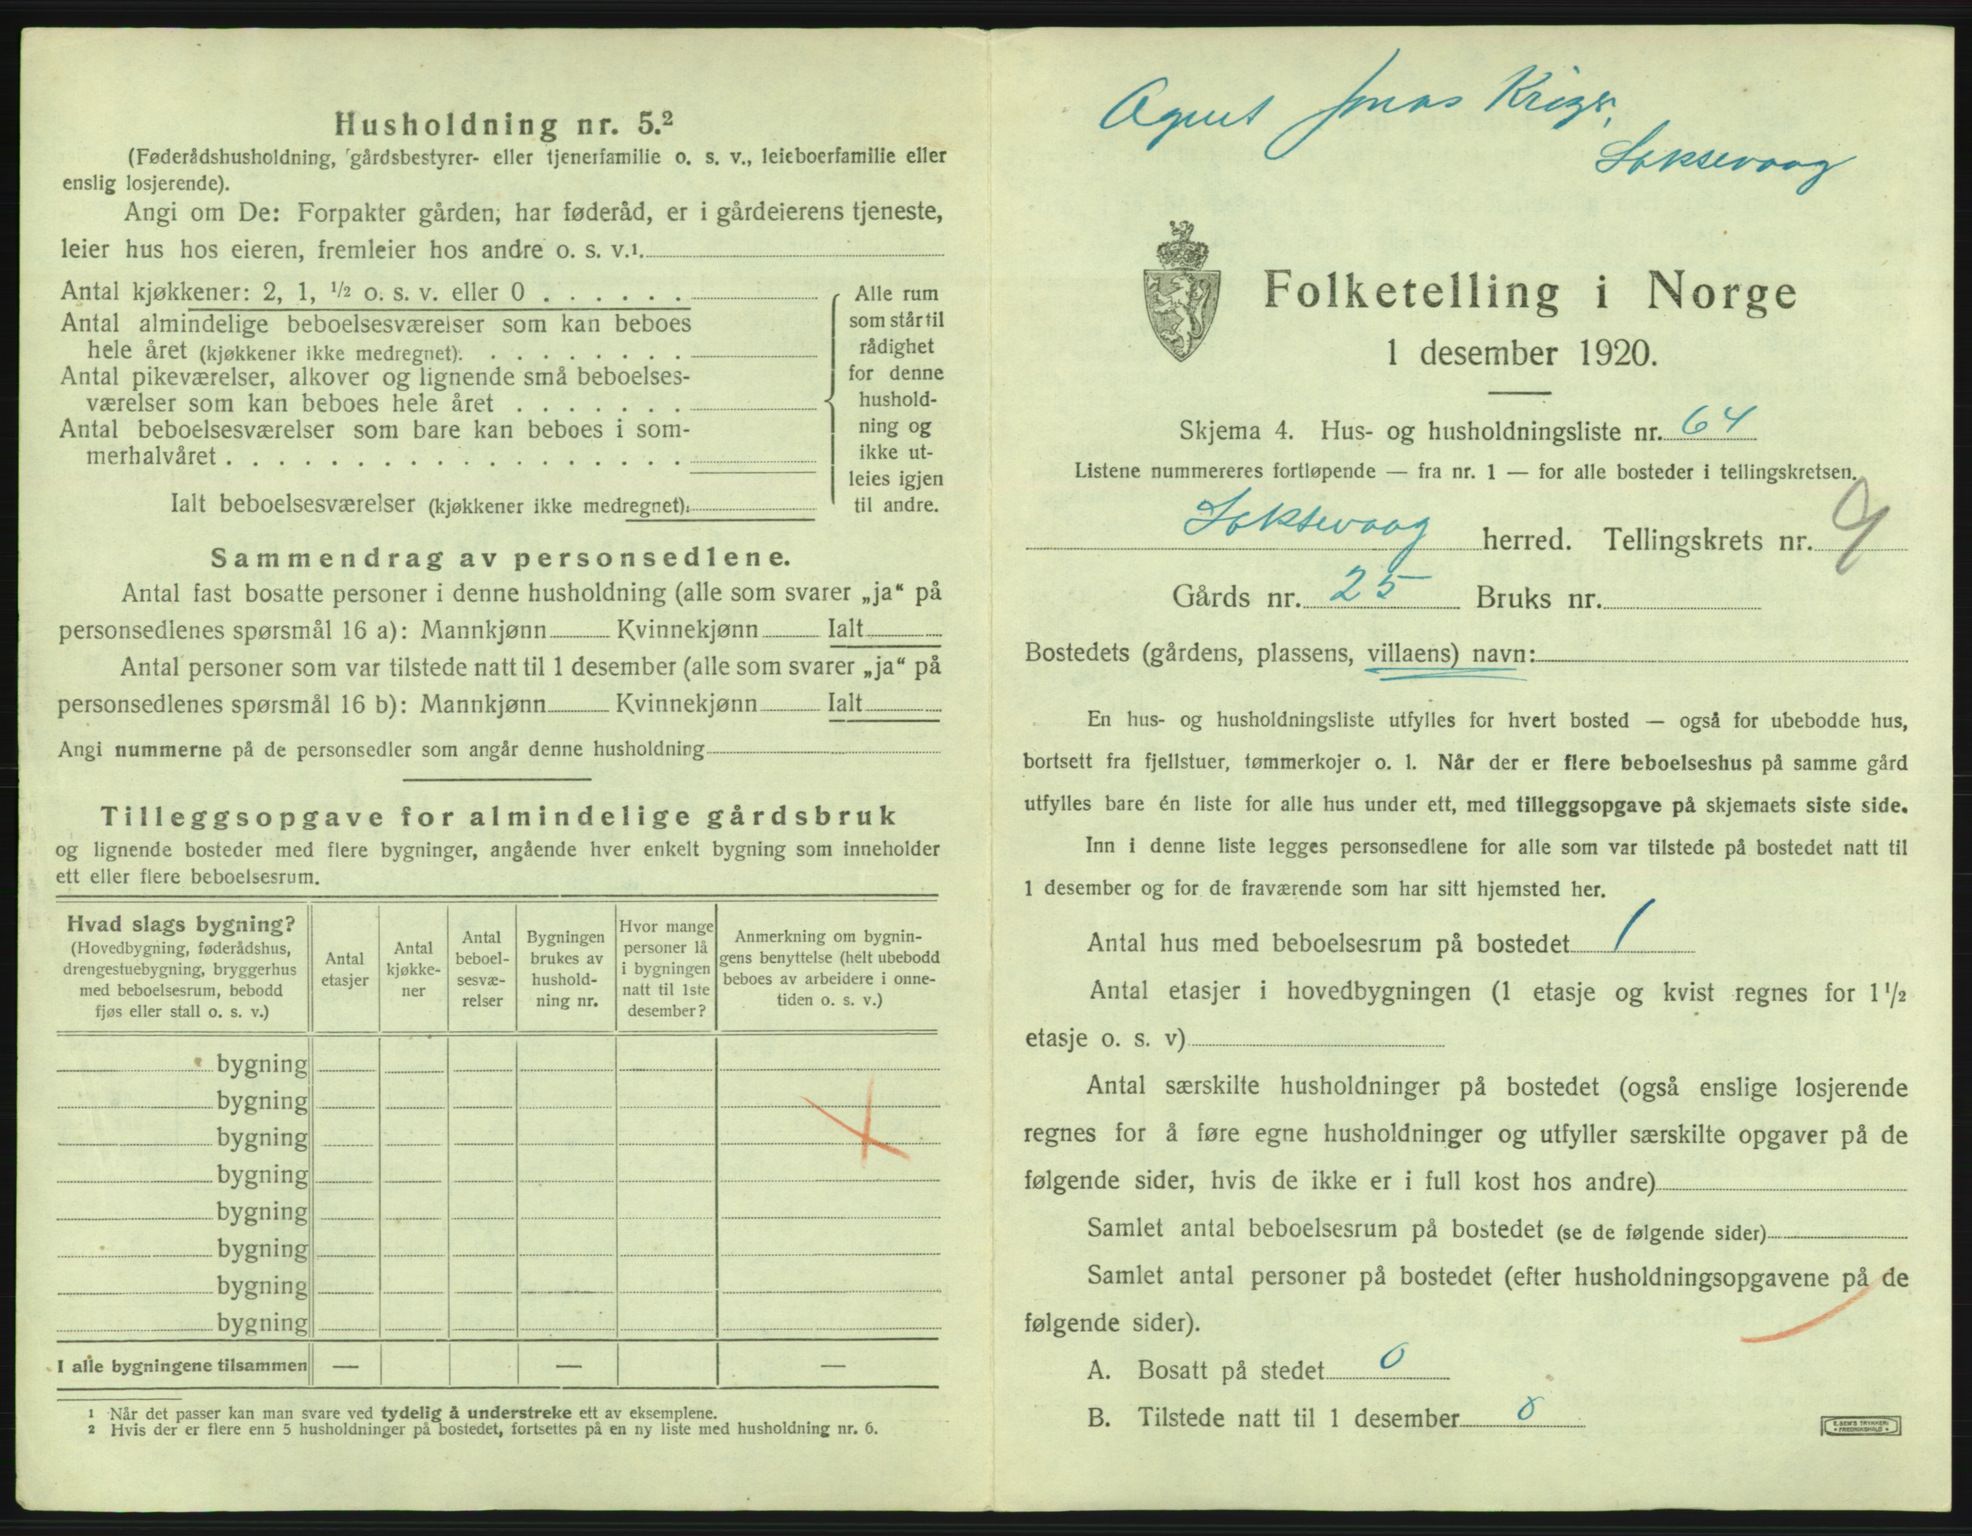 Husholdning nr. 5.²
(Føderådshusholdning, gårdsbestyrer- eller tjenerfamilie o. s. v., leieboerfamilie eller
enslig losjerende).
Angi om De: Forpakter gården, har føderåd, er i gårdeierens tjeneste,
leier hus hos eieren, fremleier hos andre o. s. v.¹.
Antal kjøkkener: 2, 1, ½ o. s. v. eller 0 . . . . . .
Antal almindelige beboelsesværelser som kan beboes
hele året (kjøkkener ikke medregnet). . . . . . . . .
Antal pikeværelser, alkover og lignende små beboelses-
værelser som kan beboes hele året . . . . . . .
Antal beboelsesværelser som bare kan beboes i som-
merhalvåret . . . . . . . . . . . . . . . . .
Ialt beboelsesværelser (kjøkkener ikke medregnet):
Alle rum
som står til
rådighet
for denne
hushold-
ning og
ikke ut-
leies igjen
til andre.
Sammendrag av personsedlene.
Antal fast bosatte personer i denne husholdning (alle som svarer „ja“ på
personsedlenes spørsmål 16 a): Mannkjønn Kvinnekjønn Ialt
Antal personer som var tilstede natt til 1 desember (alle som svarer „ja“ på
personsedlenes spørsmål 16 b): Mannkjønn Kvinnekjønn Ialt
Angi nummerne på de personsedler som angår denne husholdning
Tilleggsopgave for almindelige gårdsbruk
og lignende bosteder med flere bygninger, angående hver enkelt bygning som inneholder
ett eller flere beboelsesrum.
Hvad slags bygning?
(Hovedbygning, føderådshus,
drengestuebygning, bryggerhus
med beboelsesrum, bebodd
fjøs eller stall o. s. v.)
Antal
etasjer
Antal
kjøkke-
ner
Antal
beboel-
sesvæ-
relser
Bygningen
brukes av
hushold-
ning nr.
Hvor mange
personer lå
i bygningen
natt til 1ste
desember?
Anmerkning om bygnin-
gens benyttelse (helt ubebodd
beboes av arbeidere i onne-
tiden o. s. v.)
bygning
bygning
bygning
bygning
bygning
bygning
bygning
bygning
I alle bygningene tilsammen — — —
¹ Når det passer kan man svare ved tydelig å understreke ett av eksemplene.
² Hvis der er flere enn 5 husholdninger på bostedet, fortsettes på en ny liste med husholdning nr. 6.
Agent Jonas Kriger,
Laksevaag
Folketelling i Norge
1 desember 1920.
Skjema 4. Hus- og husholdningsliste nr. 64
Listene nummereres fortløpende — fra nr. 1 — for alle bosteder i tellingskretsen.
Laksevaag herred. Tellingskrets nr. 9
Gårds nr. 25 Bruks nr.
Bostedets (gårdens, plassens, villaens) navn:
En hus- og husholdningsliste utfylles for hvert bosted — også for ubebodde hus,
bortsett fra fjellstuer, tømmerkojer o. l. Når der er flere beboelseshus på samme gård
utfylles bare én liste for alle hus under ett, med tilleggsopgave på skjemaets siste side.
Inn i denne liste legges personsedlene for alle som var tilstede på bostedet natt til
1 desember og for de fraværende som har sitt hjemsted her.
Antal hus med beboelsesrum på bostedet 1
Antal etasjer i hovedbygningen (1 etasje og kvist regnes for 1½
etasje o. s. v)
Antal særskilte husholdninger på bostedet (også enslige losjerende
regnes for å føre egne husholdninger og utfyller særskilte opgaver på de
følgende sider, hvis de ikke er i full kost hos andre)
Samlet antal beboelsesrum på bostedet (se de følgende sider)
Samlet antal personer på bostedet (efter husholdningsopgavene på de
følgende sider).
A. Bosatt på stedet 0
B. Tilstede natt til 1 desember 0